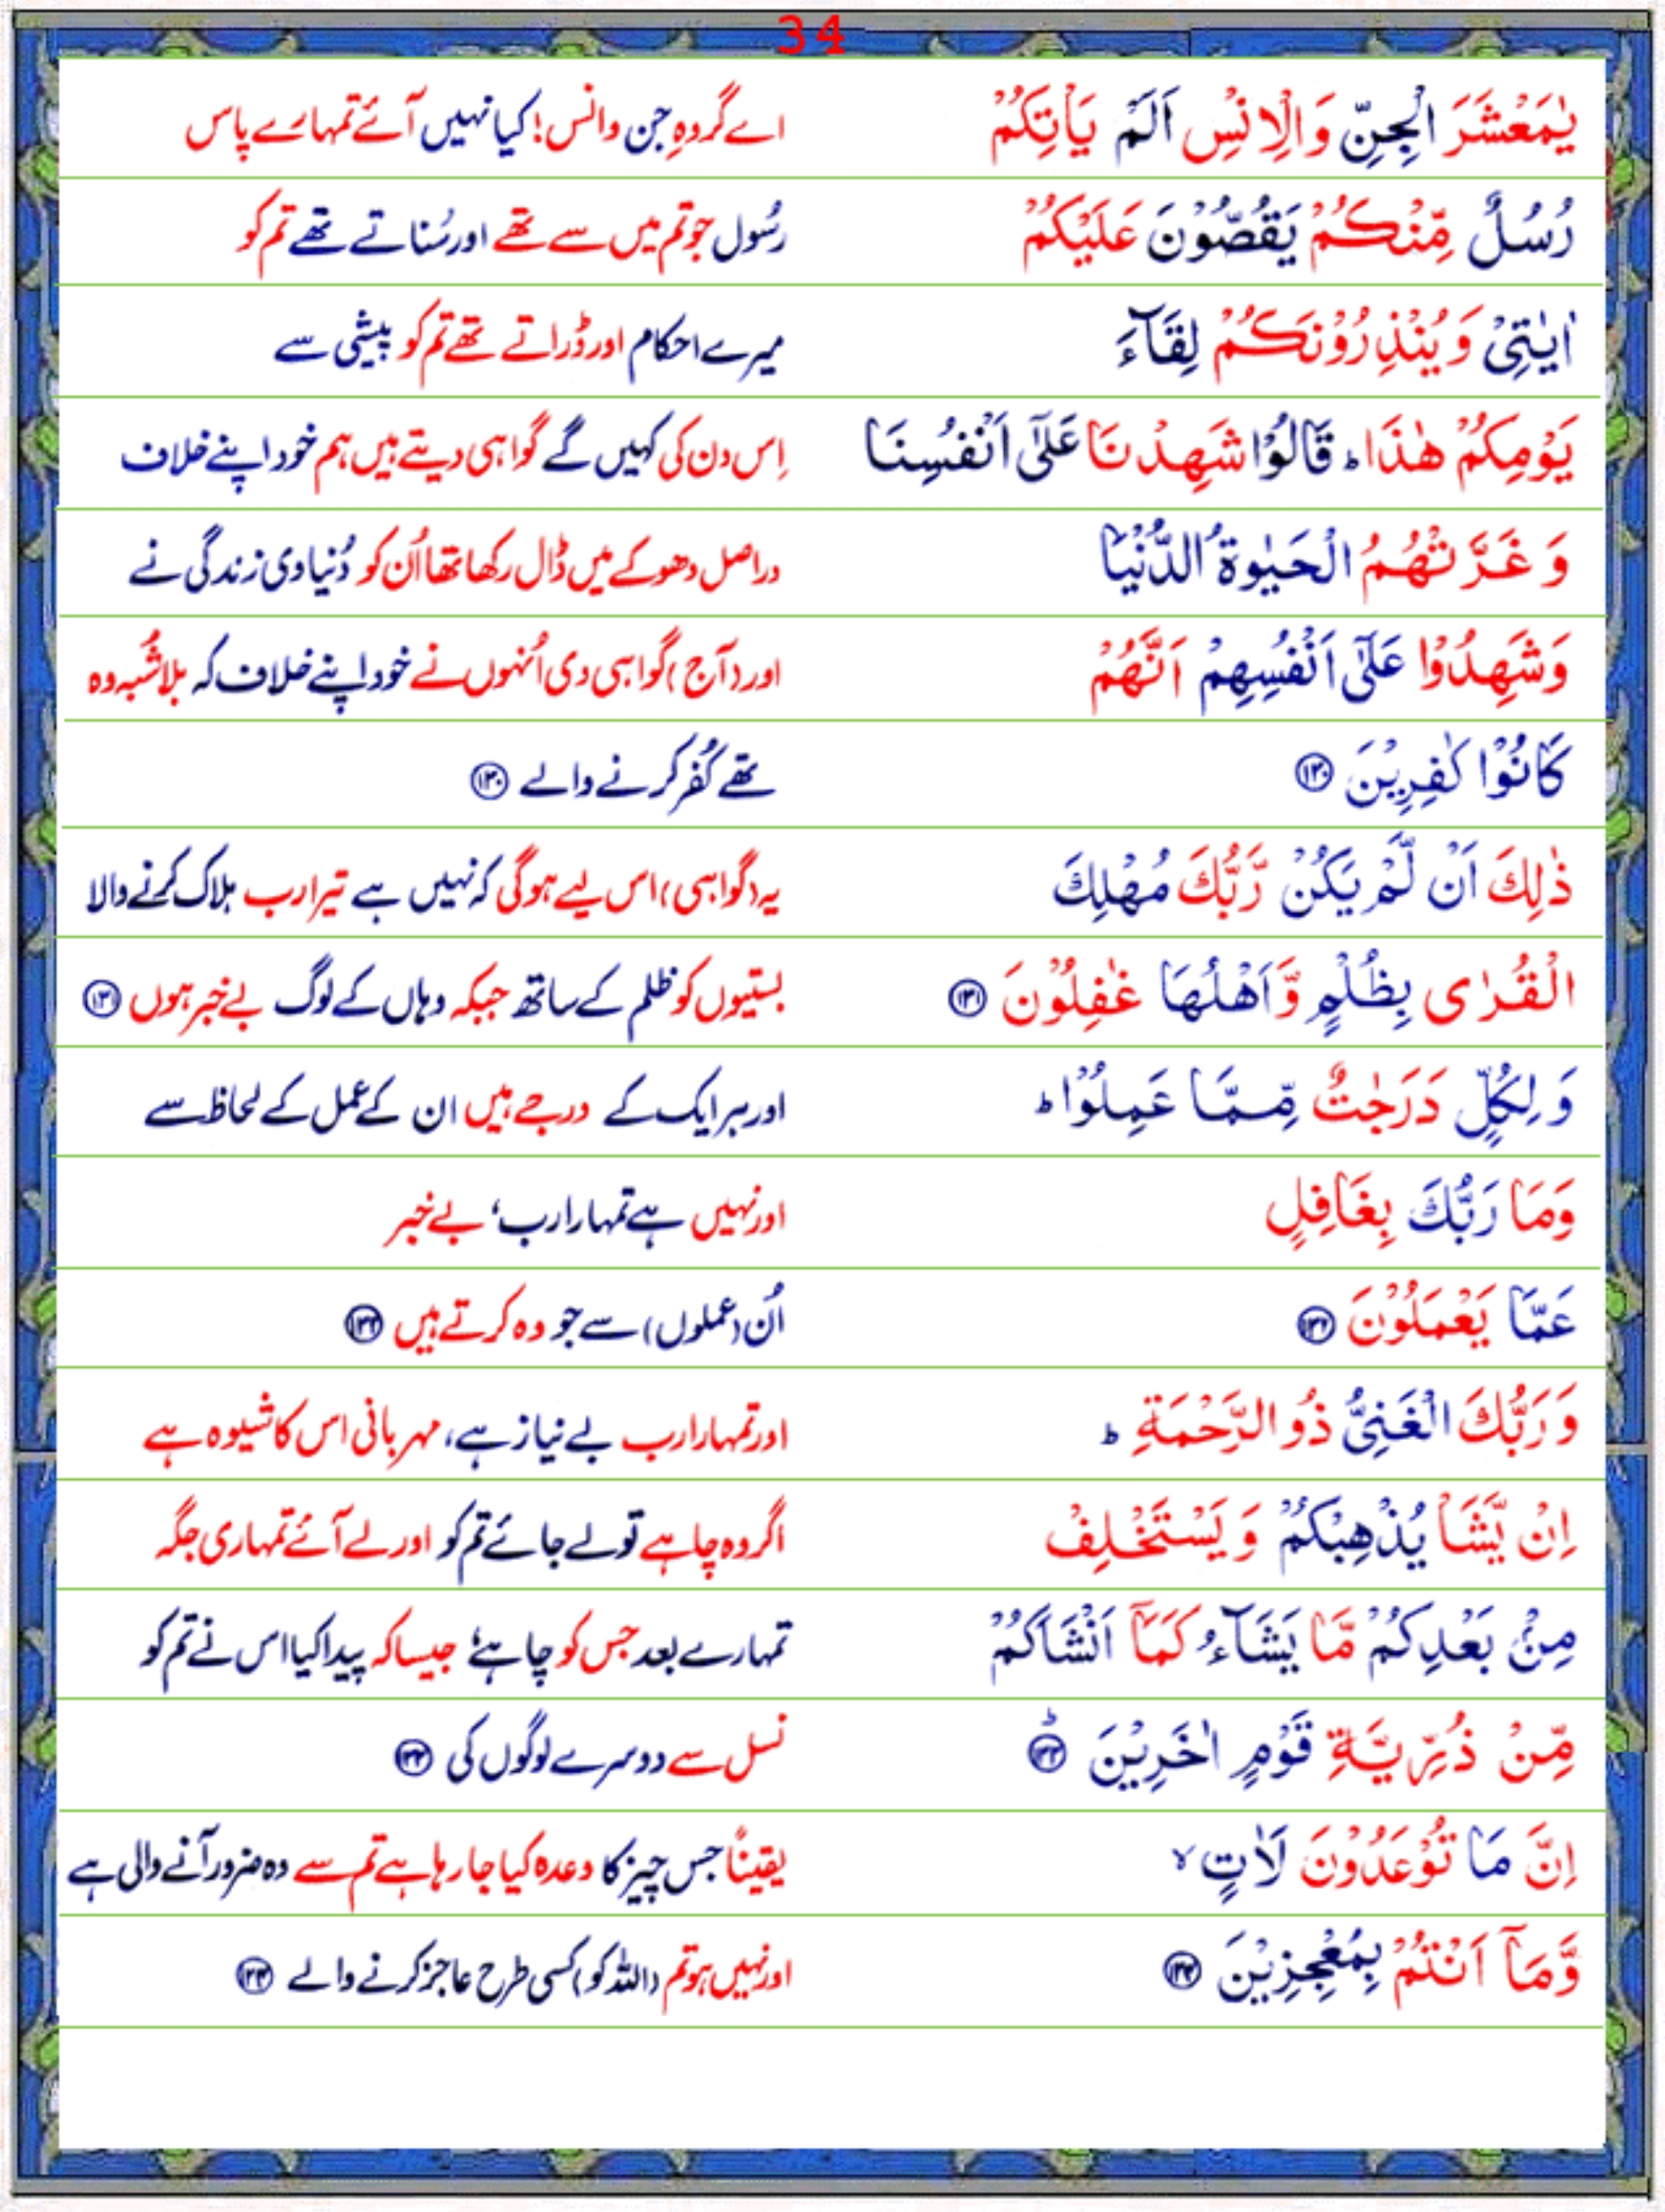 34
یٰمَعْشَرَ الْجِنِّ وَالْاِنْسِ اَلَمْ یَاْتِكُمْ اے گروہِ جن وانس! کیا نہیں آئے تمہارے پاس
رُسُلٌ مِّنْكُمْ یَقُصُّوْنَ عَلَیْكُمْ رسُول جو تم میں سے تھے اور سُناتے تھے تم کو
اٰیٰتِیْ وَیُنْذِرُوْنَكُمْ لِقَآءَ میرے احکام اور ڈراتے تھے تم کو پیشی سے
یَوْمِكُمْ هٰذَا ؕ قَالُوْا شَهِدْنَا عَلٰۤی اَنْفُسِنَا اِس دن کی کہیں گے گواہی دیتے ہیں ہم خود اپنے خلاف
وَ غَرَّتْهُمُ الْحَیٰوةُ الدُّنْیَا دراصل دھوکے میں ڈال رکھا تھا اُن کو دُنیاوی زندگی نے
وَشَهِدُوْا عَلٰۤی اَنْفُسِهِمْ اَنَّهُمْ اور (آج) گواہی دی اُنہوں نے خود اپنے خلاف کہ بلاشُبہ وہ
كَانُوْا كٰفِرِیْنَ ۝۱۳۰ تھے کُفر کرنے والے ۝۱۳۰
ذٰلِكَ اَنْ لَّمْ یَكُنْ رَّبُّكَ مُهْلِكَ یہ (گواہی) اس لیے ہوگی کہ نہیں ہے تیرا رب ہلاک کرنے والا
الْقُرٰی بِظُلْمٍ وَّاَهْلُهَا غٰفِلُوْنَ ۝۱۳۱ بستیوں کو ظلم کے ساتھ جبکہ وہاں کے لوگ بے خبر ہوں ۝۱۳۱
وَ لِكُلٍّ دَرَجٰتٌ مِّمَّا عَمِلُوْا ؕ اور ہر ایک کے درجے ہیں ان کے عمل کے لحاظ سے
وَمَا رَبُّكَ بِغَافِلٍ اور نہیں ہے تمہارا رب، بے خبر
عَمَّا یَعْمَلُوْنَ ۝۱۳۲ اُن (عملوں) سے جو وہ کرتے ہیں ۝۱۳۲
وَ رَبُّكَ الْغَنِیُّ ذُو الرَّحْمَةِ ؕ اور تمہارا رب بے نیاز ہے، مہربانی اس کا شیوہ ہے
اِنْ یَّشَاْ یُذْهِبْكُمْ وَیَسْتَخْلِفْ اگر وہ چاہے تو لے جائے تم کو اور لے آئے تمہاری جگہ
مِنْۢ بَعْدِكُمْ مَّا یَشَآءُ كَمَاۤ اَنْشَاَكُمْ تمہارے بعد جس کو چاہے جیسا کہ پیدا کیا اس نے تم کو
مِّنْ ذُرِّیَّةِ قَوْمٍ اٰخَرِیْنَ ؕ۝۱۳۳ نسل سے دوسرے لوگوں کی ۝۱۳۳
اِنَّ مَا تُوْعَدُوْنَ لَاٰتٍ ۙ یقیناً جس چیز کا وعدہ کیا جا رہا ہے تم سے وہ ضرور آنے والی ہے
وَّمَاۤ اَنْتُمْ بِمُعْجِزِیْنَ ۝۱۳۴ اور نہیں ہو تم (اللہ کو) کسی طرح عاجز کرنے والے ۝۱۳۴